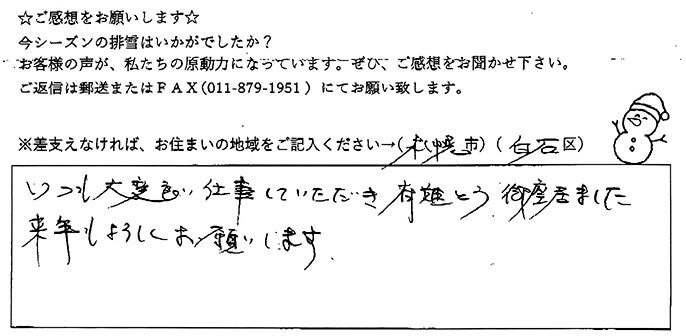 ☆ご感想をお願いします☆
今シーズンの排雪はいかがでしたか？
お客様の声が、私たちの原動力になっています。ぜひ、ご感想をお聞かせ下さい。
ご返信は郵送またはＦＡＸ(011-879-1951）にてお願い致します。
※差支えなければ、お住まいの地域をご記入ください→(札幌市）(白石区）
いつも大変良い仕事していただき有難とう御座居ました
来年もよろしくお願いします